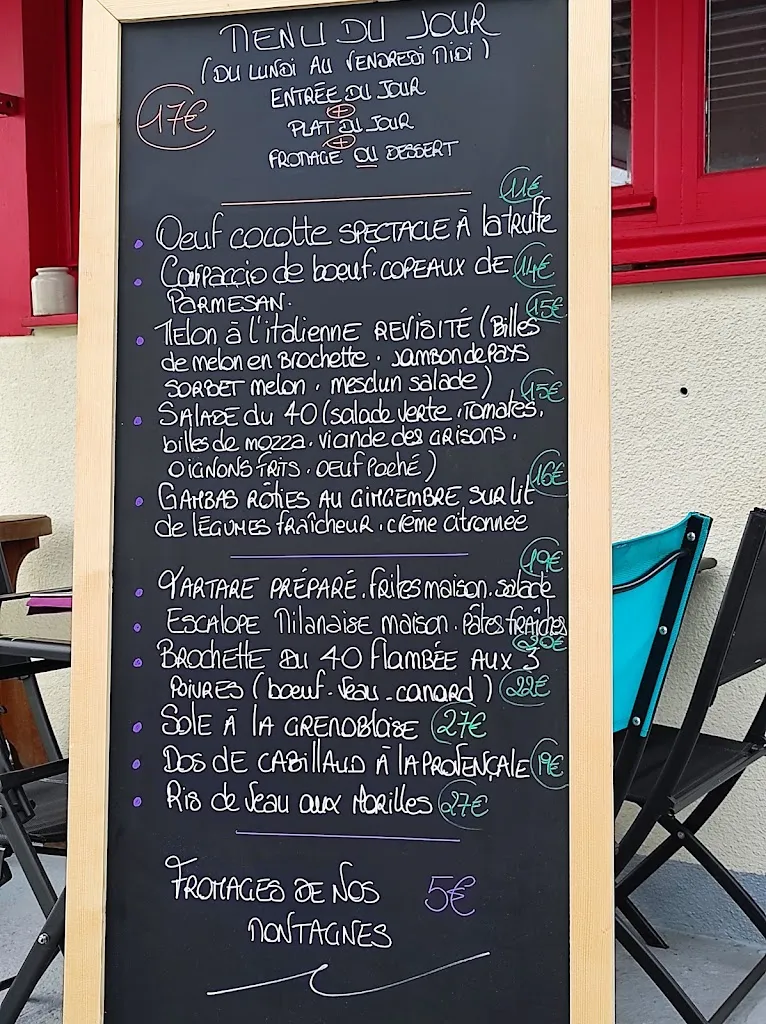 MENU DU JOUR
(DU LUNDI AU VENDREDI MIDI)
17€
ENTRÉE DU JOUR
+
PLAT DU JOUR
+
FROMAGE OU DESSERT
11€
• Oeuf cocotte SPECTACLE À la truffe
• Carpaccio de boeuf. COPEAUX DE 14€
PARMESAN.
15€
• MElon à l'italienne REVISITÉ (Billes
de melon en Brochette. Jambon de Pays
SORBET melon. mesclun salade)
15€
• SALADE du 40 (salade verte. Tomates.
billes de mozza. viande des GRISONS.
OIGNONS FRITS. OEUF Poché)
16€
• GAMBAS RÔTIES AU GINGEMBRE SUR lit
de LÉGUMES fraîcheur. crème citronnée
19€
• TARTARE PRÉPARÉ. frites maison. salade
• ESCALOPE Milanaise maison. Pâtes fraîches
20€
• BROCHETTE DU 40 FlAMBÉE AUX 3
POIVRES (boeuf. Veau. canard) 22€
• SOLE À lA GRENOBloise 27€
• DOS dE CABillAUD À lA PROVENÇALE 19€
• Ris de Veau aux Morilles 27€
FROMAGES DE NOS 5€
MONTAGNES